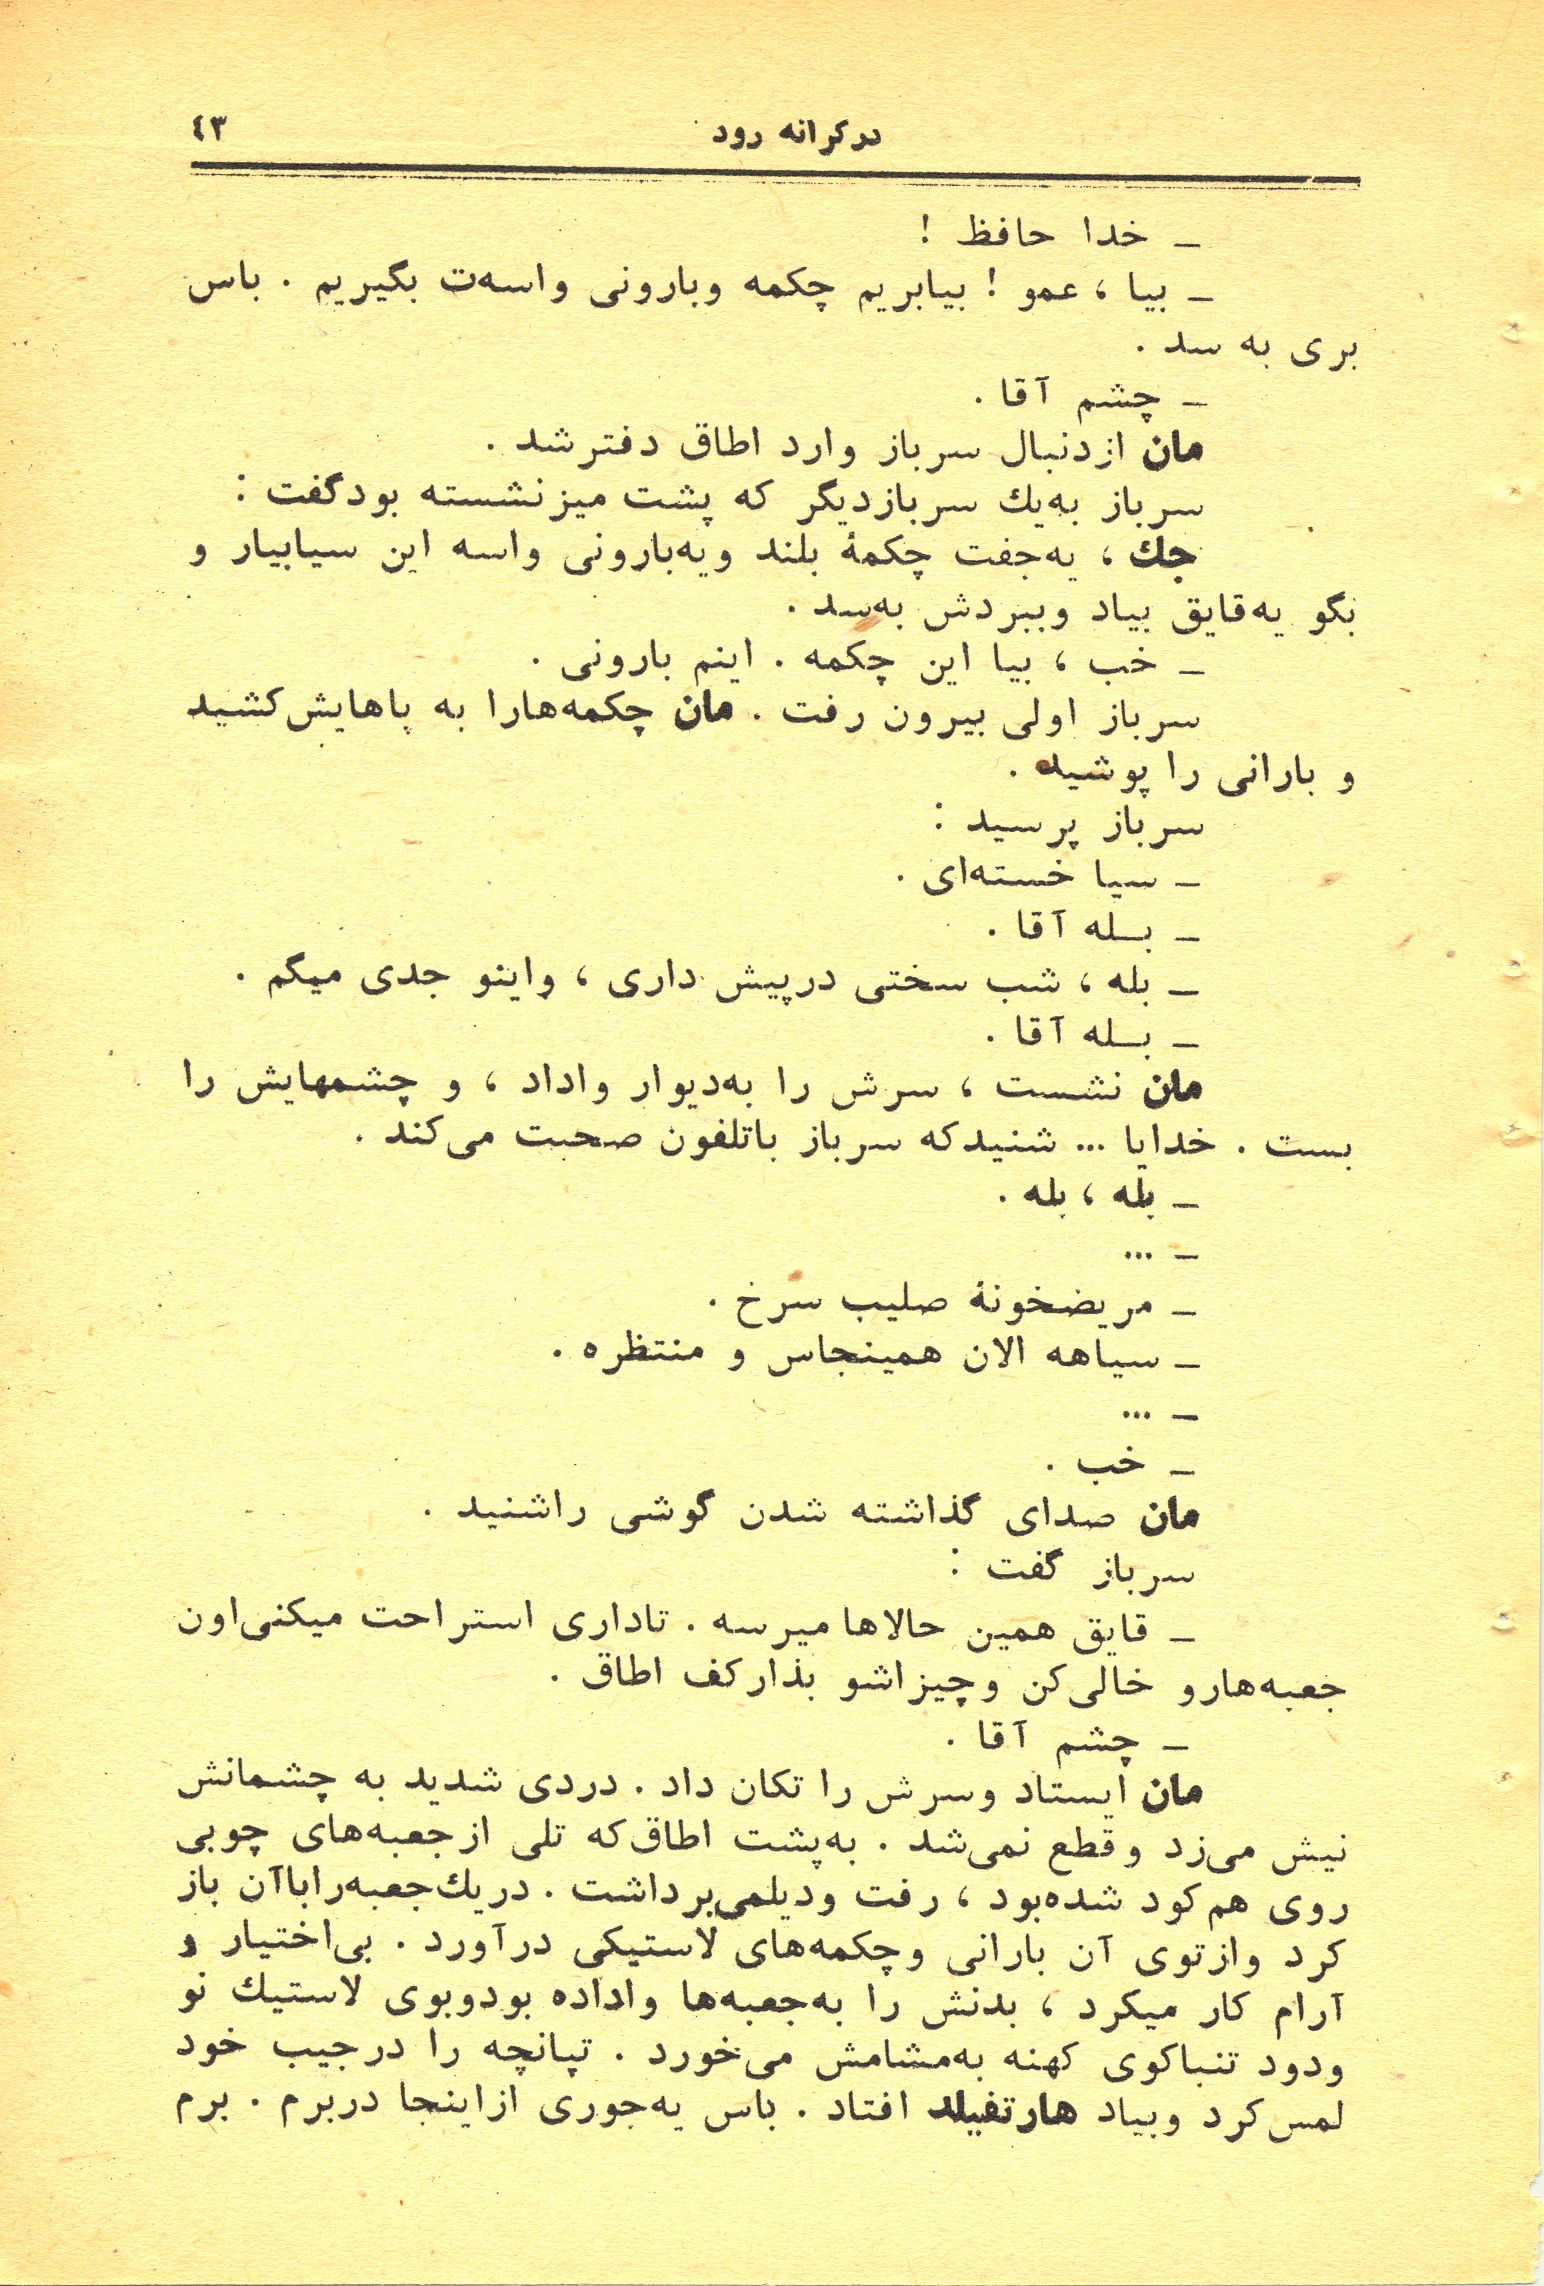 درکرانه رود ۴۳
ـ خدا حافظ !
ـ بیا ، عمو ! بیابریم چکمه وبارونی واسه‌ت بگیریم . باس
بری به سد .
ـ چشم آقا .
مان ازدنبال سرباز وارد اطاق دفترشد .
سرباز به‌یك سربازدیگر که پشت میزنشسته بودگفت :
جك ، یه‌جفت چکمهٔ بلند ویه‌بارونی واسه این سیابیار و
بگو یه‌قایق بیاد وببردش به‌سد .
ـ خب ، بیا این چکمه . اینم بارونی .
سرباز اولی بیرون رفت . مان چکمه‌هارا به پاهایش‌کشید
و بارانی را پوشید .
سرباز پرسید :
ـ سیا خسته‌ای .
ـ بـله آقا .
ـ بله ، شب سختی درپیش داری ، واینو جدی میگم .
ـ بـله آقا .
مان نشست ، سرش را به‌دیوار واداد ، و چشمهایش را
بست . خدایا ... شنیدکه سرباز باتلفون صحبت می‌کند .
ـ بله ، بله .
ـ ...
ـ مریضخونهٔ صلیب سرخ .
ـ سیاهه الان همینجاس و منتظره .
ـ ...
ـ خب .
مان صدای گذاشته شدن گوشی راشنید .
سرباز گفت :
ـ قایق همین حالاها میرسه . تاداری استراحت میکنی‌اون
جعبه‌هارو خالی‌کن وچیزاشو بذارکف اطاق .
ـ چشم آقا .
مان ایستاد وسرش را تکان داد . دردی شدید به چشمانش
نیش می‌زد وقطع نمی‌شد . به‌پشت اطاق‌که تلی ازجعبه‌های چوبی
روی هم‌کود شده‌بود ، رفت ودیلمی‌برداشت . دریك‌جعبه‌راباآن باز
کرد وازتوی آن بارانی وچکمه‌های لاستیکی درآورد . بی‌اختیار و
آرام کار میکرد ، بدنش را به‌جعبه‌ها واداده بودوبوی لاستیك نو
ودود تنباکوی کهنه به‌مشامش می‌خورد . تپانچه را درجیب خود
لمس‌کرد وبیاد هارتفیلد افتاد . باس یه‌جوری ازاینجا دربرم . برم